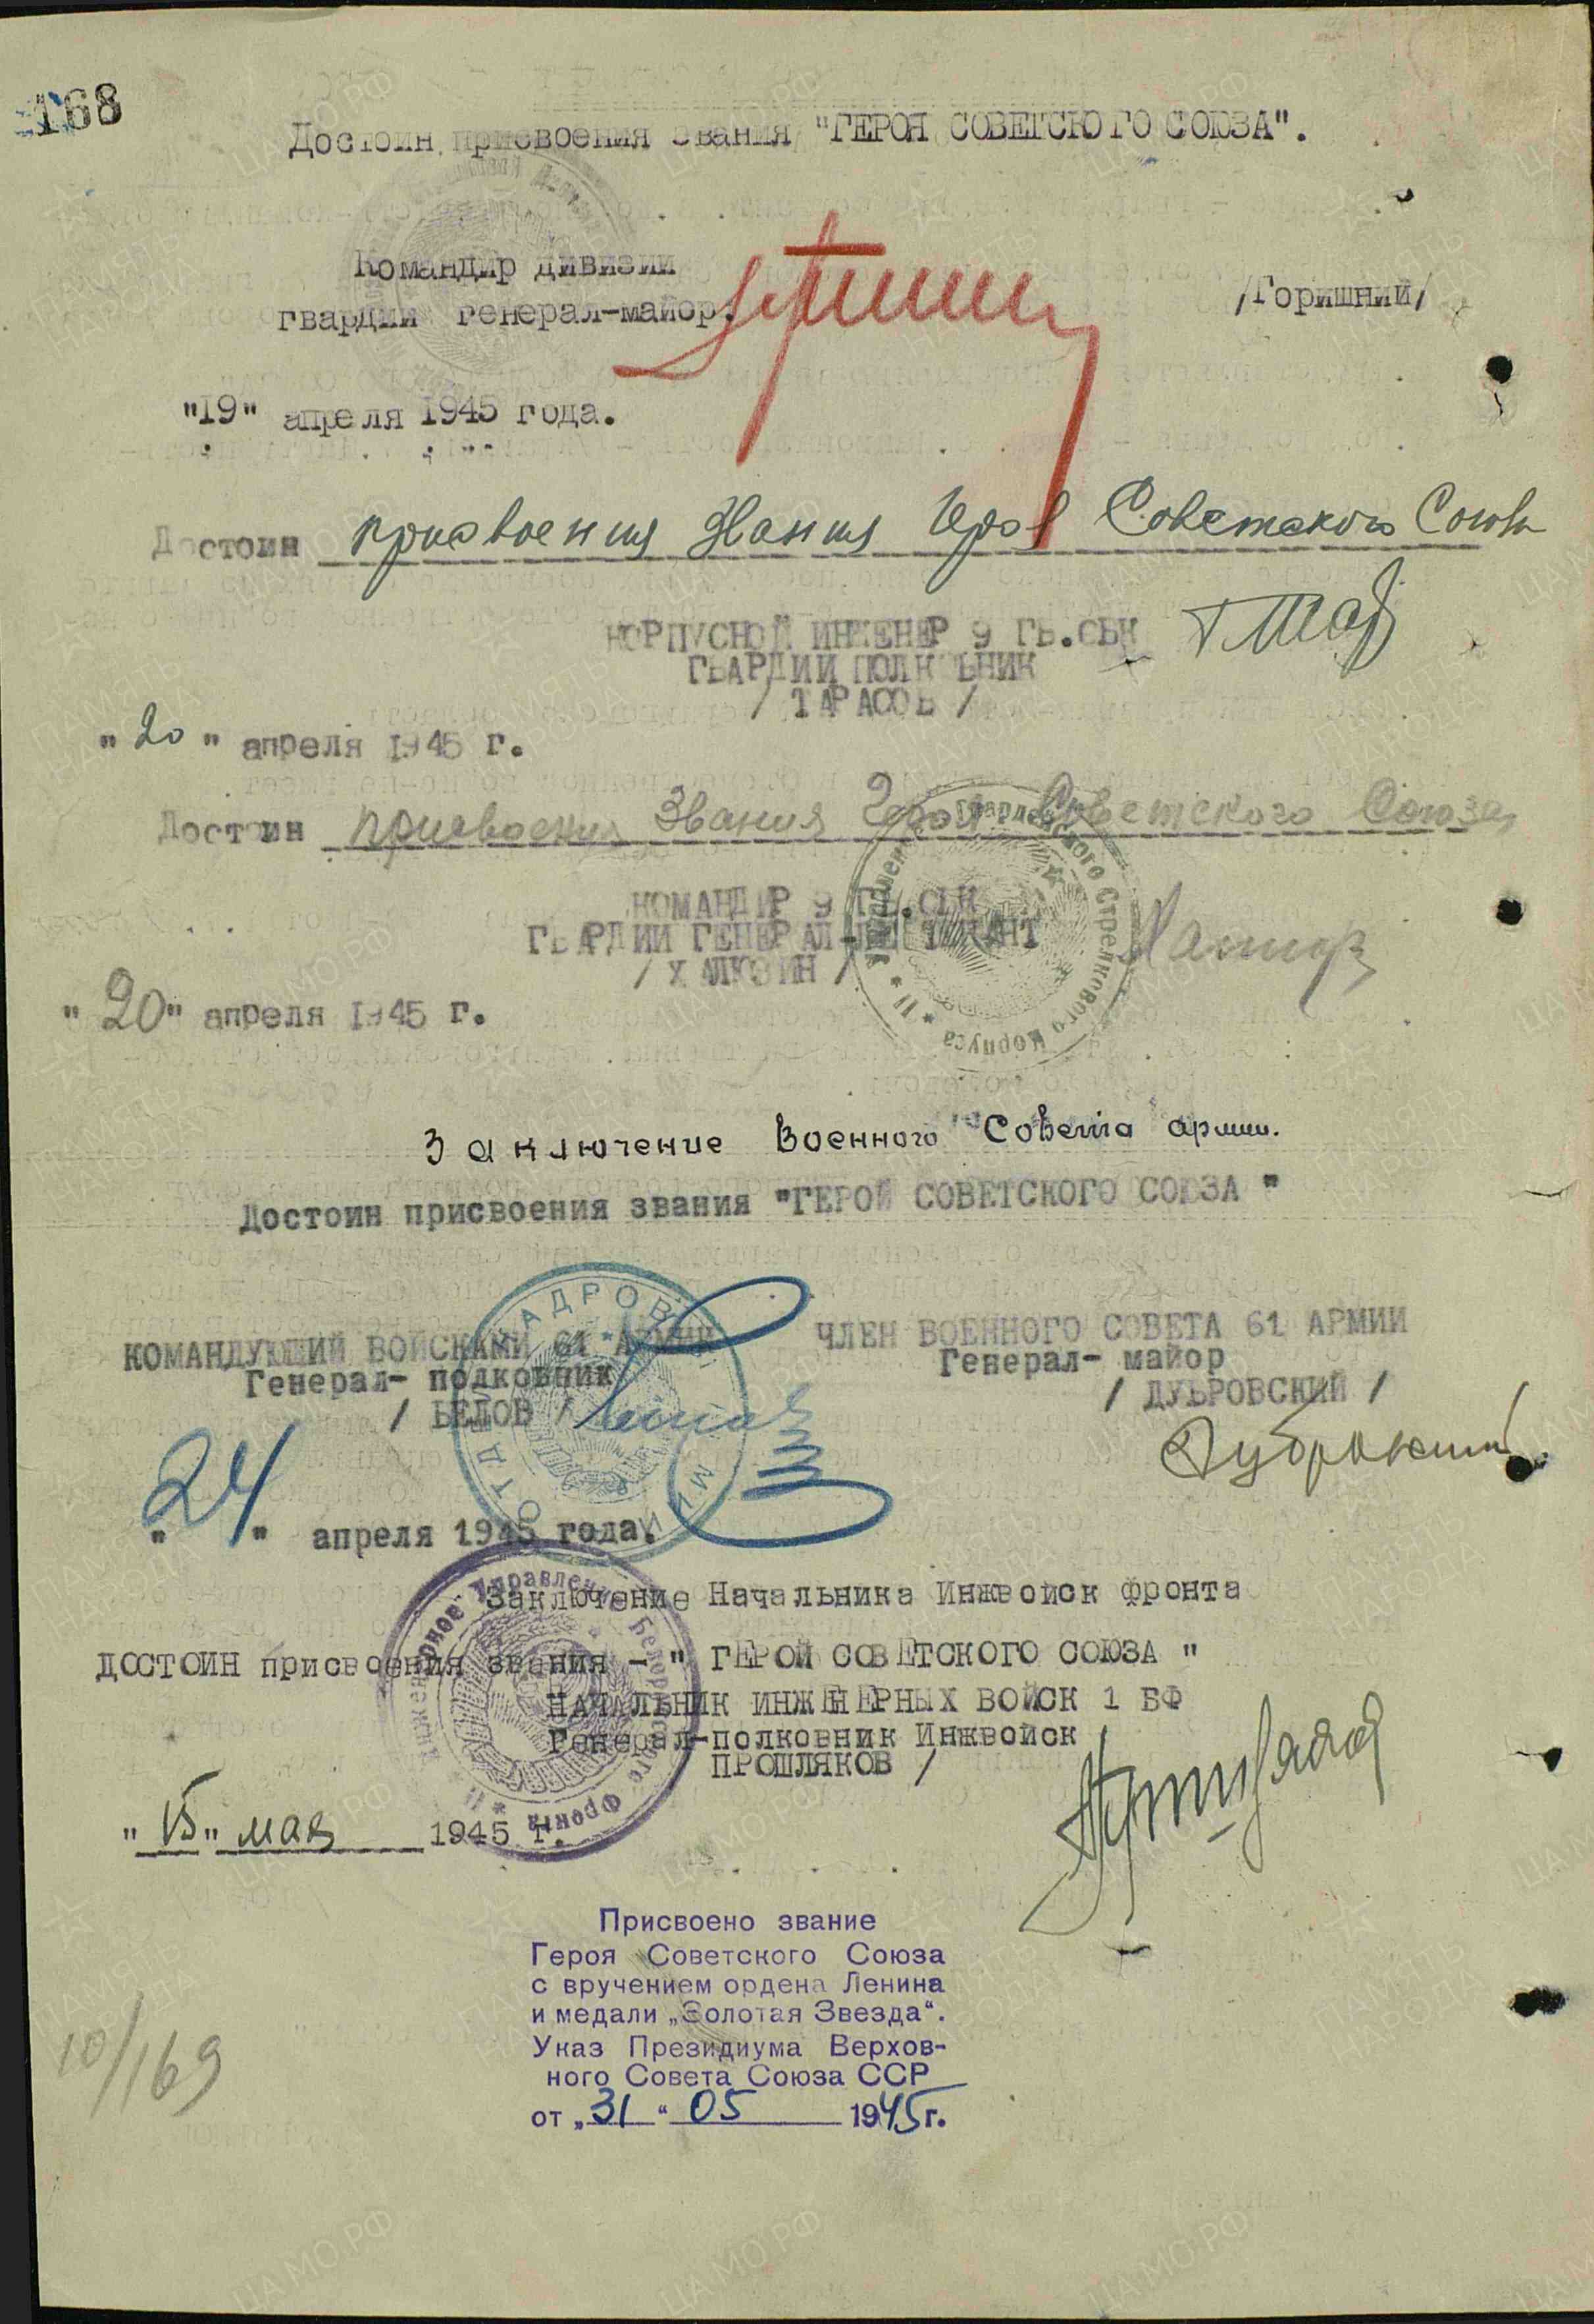 168
Достоин присвоения звания "ГЕРОЯ СОВЕТСКОГО СОЮЗА".
Командир дивизии
гвардии генерал-майор: /Горишний/
"19" апреля 1945 года.
Достоин присвоения звания Героя Советского Союза
КОРПУСНОЙ ИНЖЕНЕР 9 ГВ.СБК
ГВАРДИИ ПОЛКОВНИК
/ ТАРАСОВ /
"20" апреля 1945 г.
Достоин присвоения звания Героя Советского Союза
КОМАНДИР 9 ГВ.СБК
ГВАРДИИ ГЕНЕРАЛ-ЛЕЙТЕНАНТ
/ ХАЛЮЗИН /
Управление Гвардейского Стрелкового Корпуса
"20" апреля 1945 г.
Заключение Военного Совета армии.
Достоин присвоения звания "ГЕРОЙ СОВЕТСКОГО СОЮЗА "
КОМАНДУЮЩИЙ ВОЙСКАМИ 61 АРМИИ
Генерал- полковник
/ БЕЛОВ /
ЧЛЕН ВОЕННОГО СОВЕТА 61 АРМИИ
Генерал- майор
/ ДУБРОВСКИЙ /
Дубровский
ОТДЕЛ КАДРОВ
"24" апреля 1945 года.
Заключение Начальника Инжвойск фронта
ДОСТОИН присвоения звания - " ГЕРОЙ СОВЕТСКОГО СОЮЗА "
НАЧАЛЬНИК ИНЖЕНЕРНЫХ ВОЙСК 1 БФ
Генерал-полковник Инжвойск
ПРОШЛЯКОВ /
Инженерное Управление Белорусского Фронта
"15" мая 1945 г.
Присвоено звание
Героя Советского Союза
с вручением ордена Ленина
и медали „Золотая Звезда“.
Указ Президиума Верхов-
ного Совета Союза ССР
от „31“ 05 1945 г.
10/169
ЦА МО РФ
ПАМЯТЬ НАРОДА